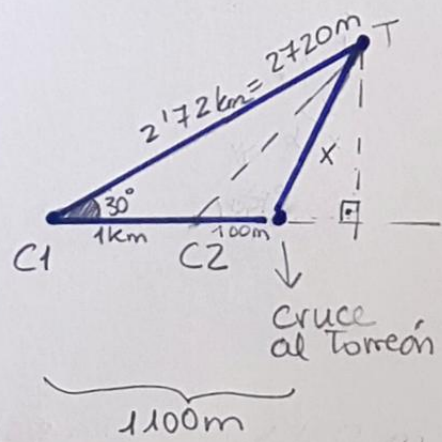 T
2'72 km = 2720m
x
30°
1km
100m
C1
C2
cruce
al Torreón
1100m